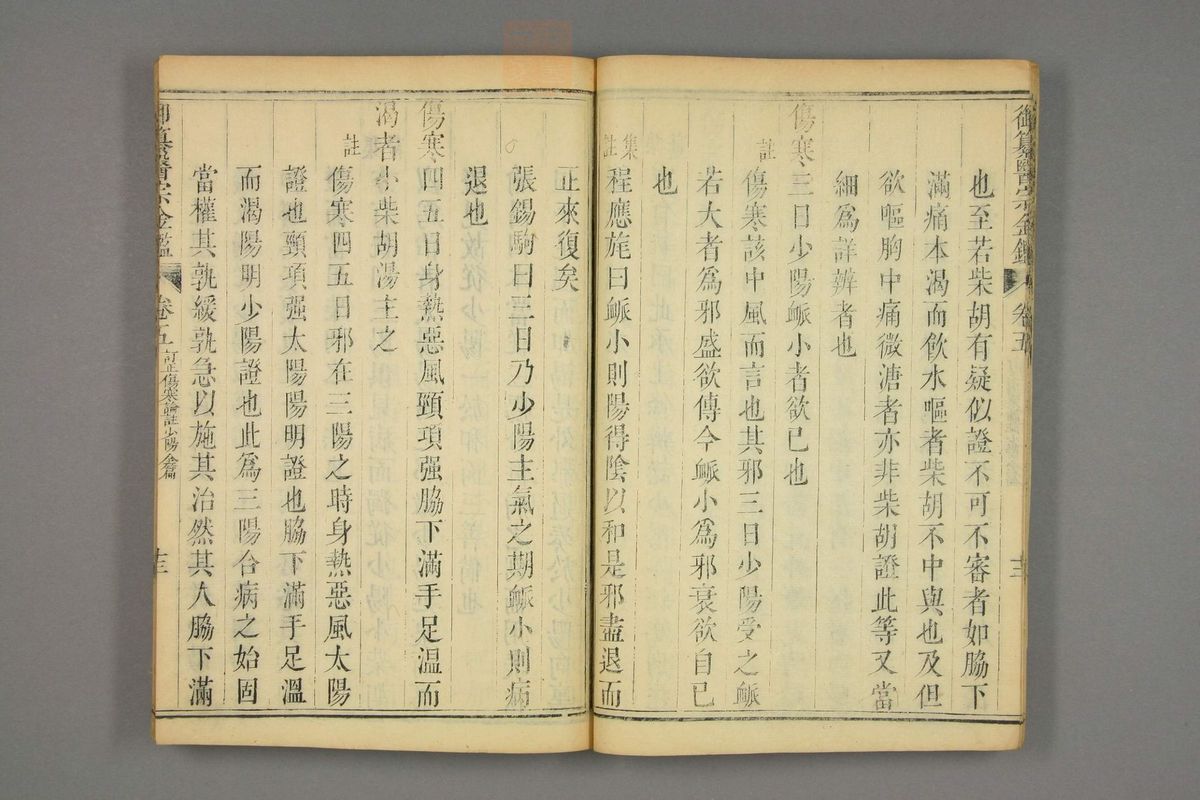 御纂醫宗金鑑 卷五 十三
也至若柴胡有疑似證不可不審者如脇下
滿痛本渴而飲水嘔者柴胡不中與也及但
欲嘔胸中痛微溏者亦非柴胡證此等又當
細爲詳辨者也
傷寒三日少陽䘑小者欲已也
註 傷寒該中風而言也其邪三日少陽受之䘑
若大者爲邪盛欲傳今䘑小爲邪衰欲自已
也
集註 程應旄曰䘑小則陽得陰以和是邪盡退而
正來復矣
張錫駒曰三日乃少陽主氣之期䘑小則病
退也
傷寒四五日身熱惡風頸項强脇下滿手足温而
渴者小柴胡湯主之
註 傷寒四五日邪在三陽之時身熱惡風太陽
證也頸項强太陽陽明證也脇下滿手足溫
而渴陽明少陽證也此爲三陽合病之始固
當權其孰緩孰急以施其治然其人脇下滿
御纂醫宗金鑑 卷五 訂正傷寒論註少陽全篇 十三